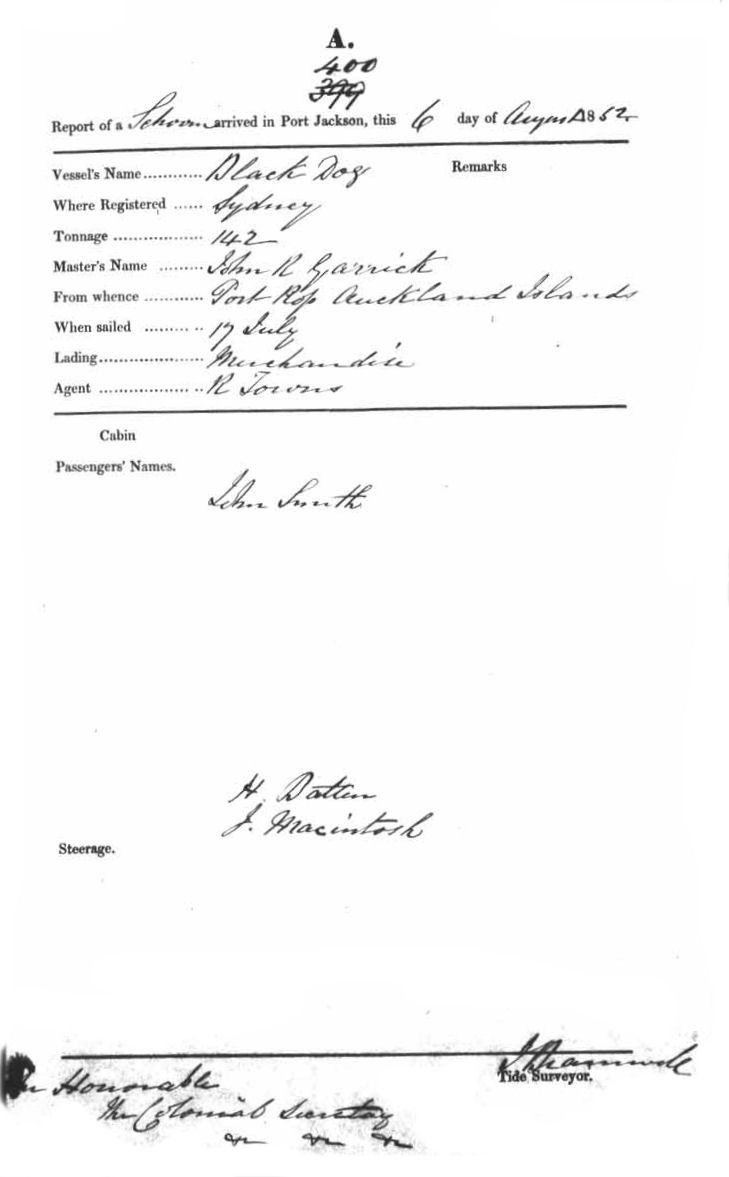 A.
400
399
Report of a Schooner arrived in Port Jackson, this 6 day of August 1852
Vessel's Name............ Black Dog Remarks
Where Registered ...... Sydney
Tonnage .................. 142
Master's Name ......... John R Garrick
From whence ............ Port Ross Auckland Islands
When sailed ......... .. 17 July
Lading..................... Merchandise
Agent .................. .. R Towns
Cabin
Passengers' Names.
John Smith
H. Batten
J. Macintosh
Steerage.
Tide Surveyor.
Honorable
The Colonial Secretary